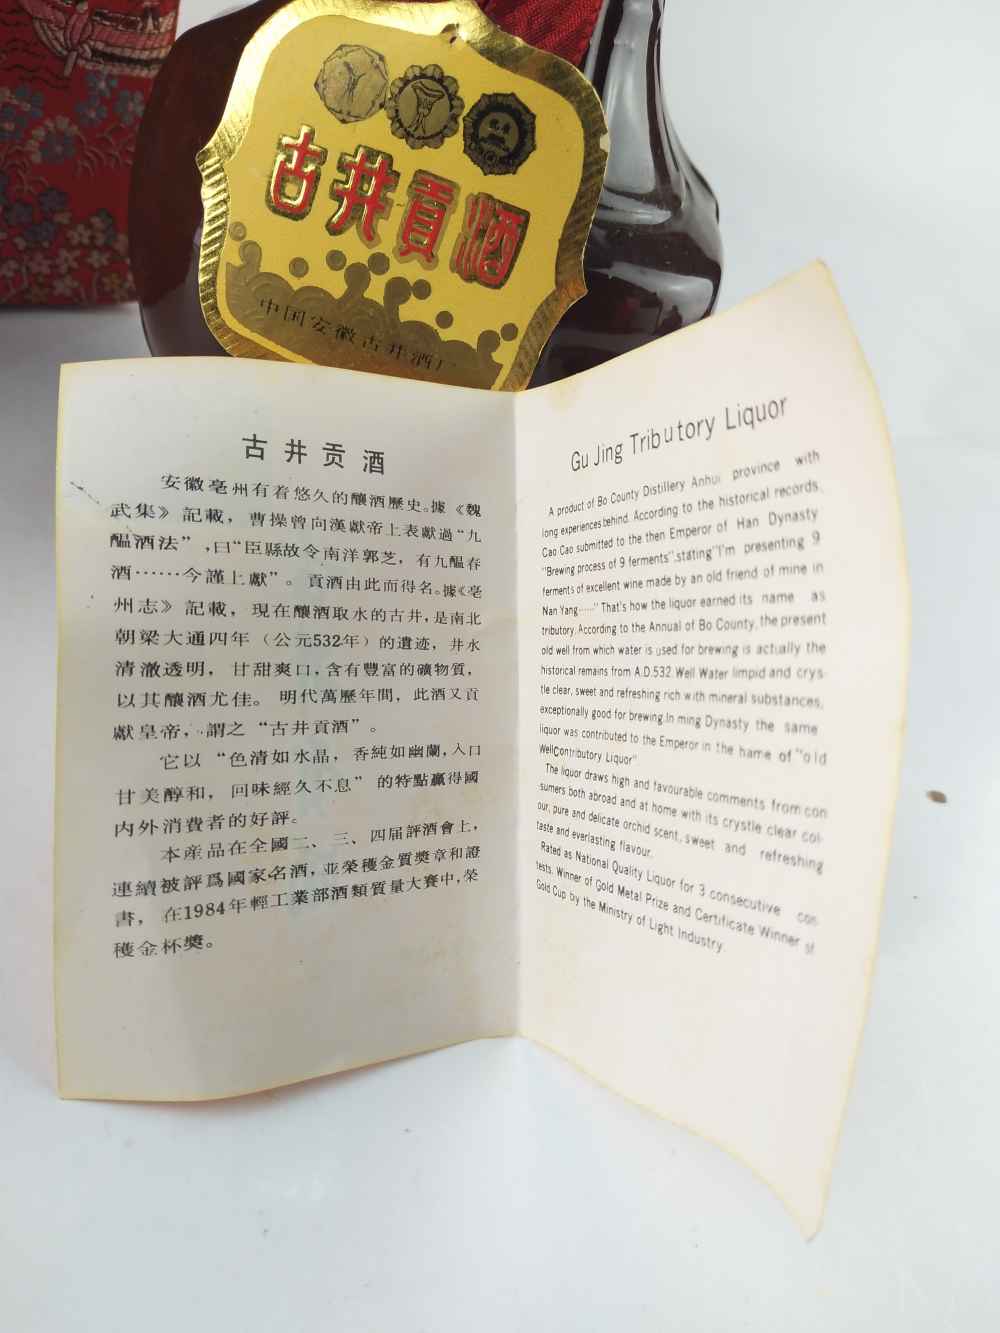 古井贡酒
中国安徽古井酒厂
古井贡酒
安徽亳州有着悠久的釀酒歷史。據《魏
武集》記載，曹操曾向漢獻帝上表獻過“九
醖酒法”，曰“臣縣故令南洋郭芝，有九醖春
酒……今謹上獻”。貢酒由此而得名。據《亳
州志》記載，現在釀酒取水的古井，是南北
朝梁大通四年（公元532年）的遺迹，井水
清澈透明，甘甜爽口，含有豐富的礦物質，
以其釀酒尤佳。明代萬歷年間，此酒又貢
獻皇帝，謂之“古井貢酒”。
它以“色清如水晶，香純如幽蘭，入口
甘美醇和，回味經久不息”的特點贏得國
内外消費者的好評。
本産品在全國二、三、四届評酒會上，
連續被評爲國家名酒，並榮穫金質獎章和證
書，在1984年輕工業部酒類質量大賽中，榮
穫金杯獎。
Gu Jing Tributory Liquor
A product of Bo County Distillery Anhui province with
long experiences behind. According to the historical records,
Cao Cao submitted to the then Emperor of Han Dynasty
"Brewing process of 9 ferments".stating"I'm presenting 9
ferments of excellent wine made by an old friend of mine in
Nan Yang……" That's how the liquor earned its name as
tributory. According to the Annual of Bo County, the present
old well from which water is used for brewing is actually the
historical remains from A.D.532. Well Water limpid and crys-
tle clear, sweet and refreshing rich with mineral substances,
exceptionally good for brewing. In ming Dynasty the same
liquor was contributed to the Emperor in the hame of "old
WellContributory Liquor"
The liquor draws high and favourable comments from con
sumers both abroad and at home with its crystle clear col-
our, pure and delicate orchid scent, sweet and refreshing
taste and everlasting flavour.
Rated as National Quality Liquor for 3 consecutive con
tests. Winner of Gold Metal Prize and Certificate Winner of
Gold Cup by the Ministry of Light Industry.